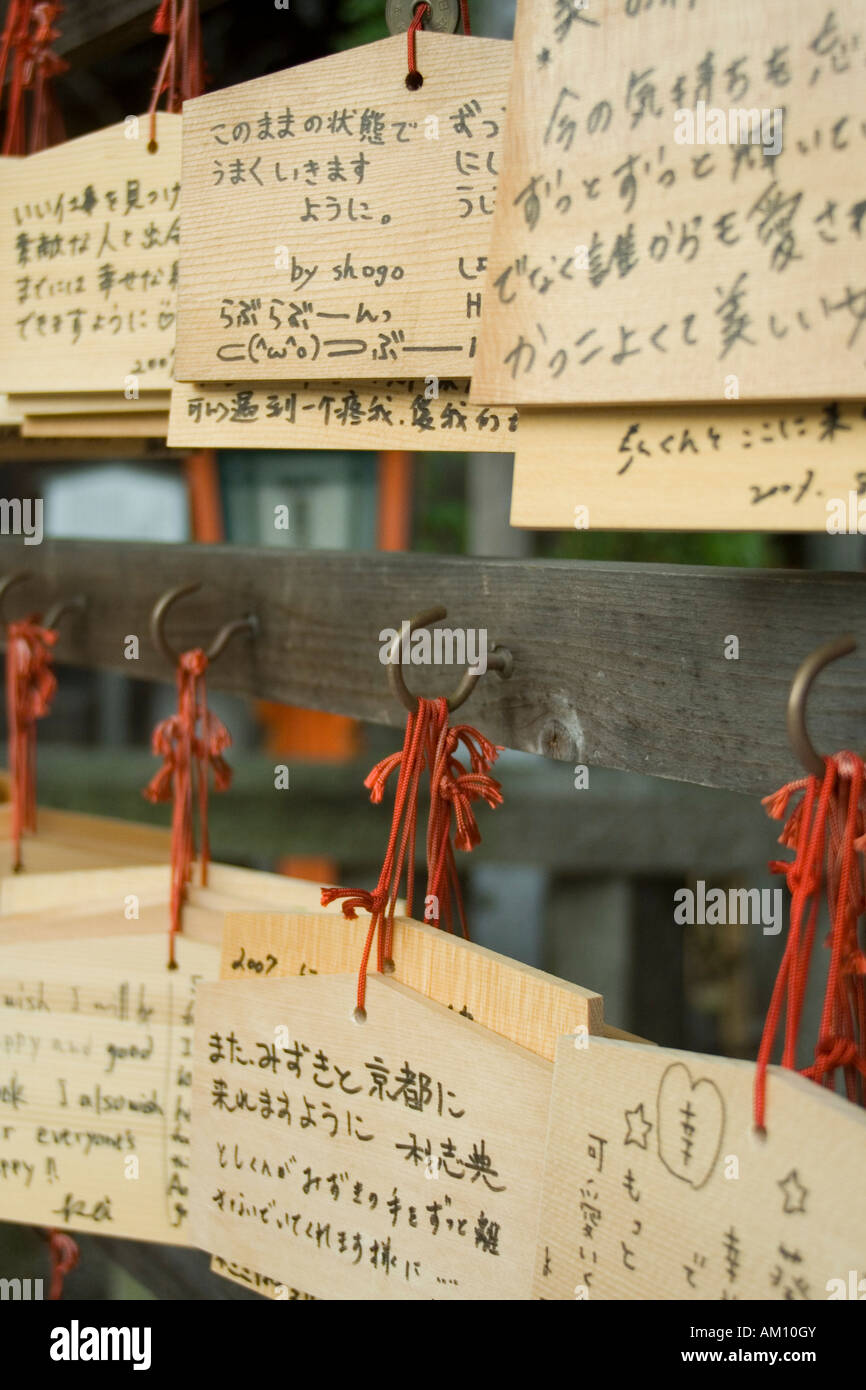 いい仕事を見つけ
素敵な人と出会
までには幸せな
できますように
2007
このままの状態で
うまくいきます
ように。
by shogo
らぶらぶーんっ
⊂(^ω^o)⊃ぶーー
ずっ
にし
うじ
しょ
H
今の気持ちも忘
ずっとずっと輝いて
でなく誰からも愛され
かっこよくて美しい女
可以遇到一个疼我.爱我的
くんと ここに来
2007.
wish I will be
ppy and good
ok I also wish
r everyone's
ppy!!
Kei
2007
また、みずきと京都に
来れますように 利志典
としくんがみずきの手をずっと離
さないでいてくれます様に
幸
☆もっと
可愛いく
☆
で
幸
alamy
Image ID: AM10GY
www.alamy.com